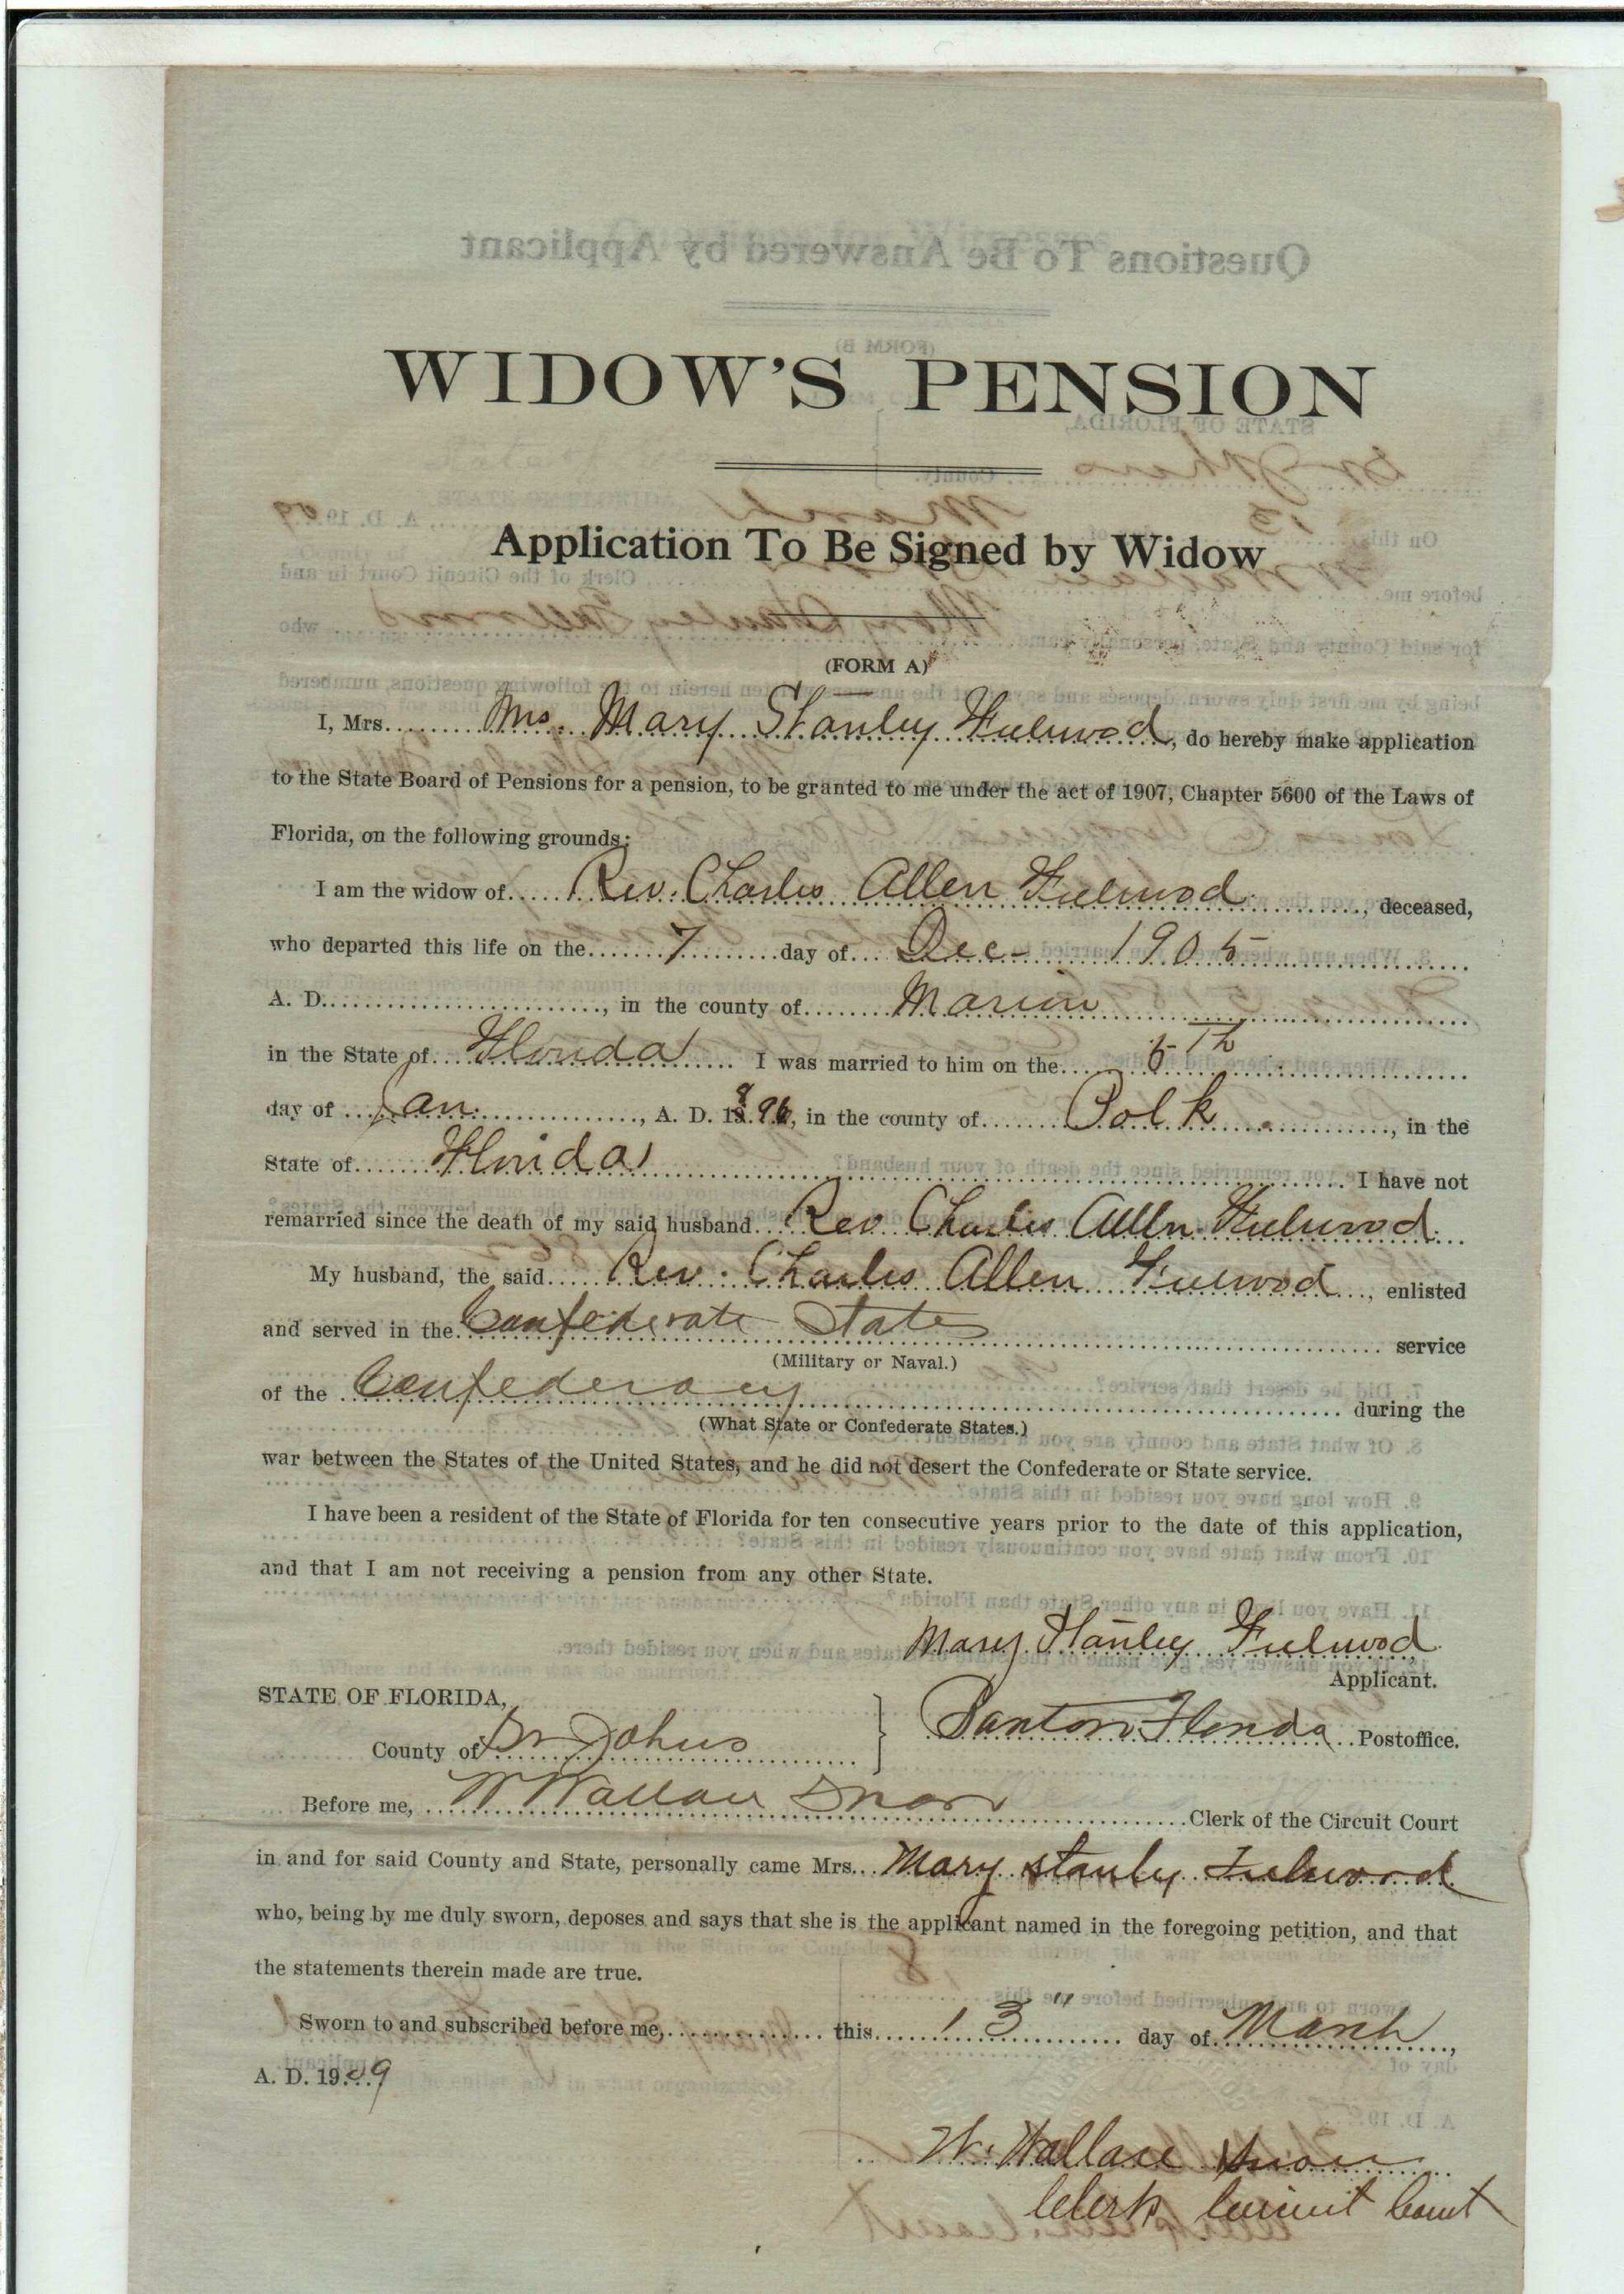 WIDOW'S PENSION
Application To Be Signed by Widow
(FORM A)
I, Mrs. Mrs. Mary Stanley Fulwood, do hereby make application
to the State Board of Pensions for a pension, to be granted to me under the act of 1907, Chapter 5600 of the Laws of
Florida, on the following grounds:
I am the widow of Rev. Charles Allen Fulwood, deceased,
who departed this life on the 7 day of Dec- 1905
A. D. , in the county of Marion
in the State of Florida I was married to him on the 5th
day of Jan. , A. D. 1896, in the county of Polk , in the
State of Florida I have not
remarried since the death of my said husband Rev Charles Allen Fulwood.
My husband, the said Rev. Charles Allen Fulwood , enlisted
and served in the Confederate State service
(Military or Naval.)
of the Confederacy during the
(What State or Confederate States.)
war between the States of the United States, and he did not desert the Confederate or State service.
I have been a resident of the State of Florida for ten consecutive years prior to the date of this application,
and that I am not receiving a pension from any other State.
Mary Stanley Fulwood
Applicant.
STATE OF FLORIDA,
County of St Johns } Florida Postoffice.
Before me, W Wallace Snow Clerk of the Circuit Court
in and for said County and State, personally came Mrs. Mary Stanley Fulwood
who, being by me duly sworn, deposes and says that she is the applicant named in the foregoing petition, and that
the statements therein made are true.
Sworn to and subscribed before me, this 13" day of March,
A. D. 1909
W. Wallace Snow
Clerk Circuit Court